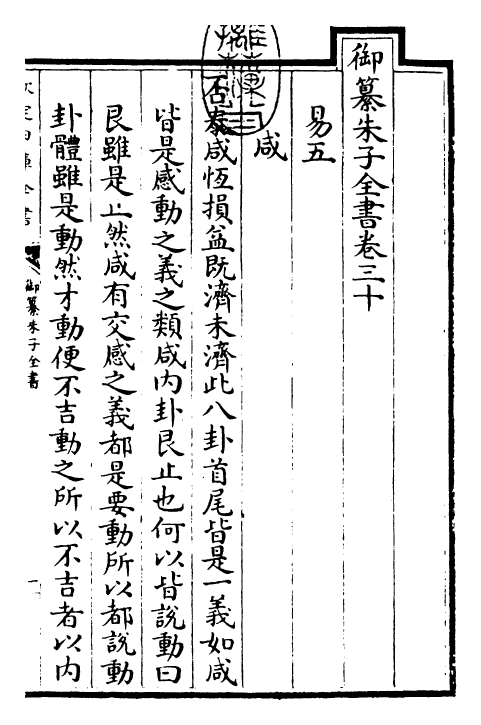 御纂朱子全書卷三十
易五
咸
否泰咸恆損益既濟未濟此八卦首尾皆是一義如咸
皆是感動之義之類咸內卦艮止也何以皆說動曰
艮雖是止然咸有交感之義都是要動所以都說動
卦體雖是動然才動便不吉動之所以不吉者以內
御纂朱子全書